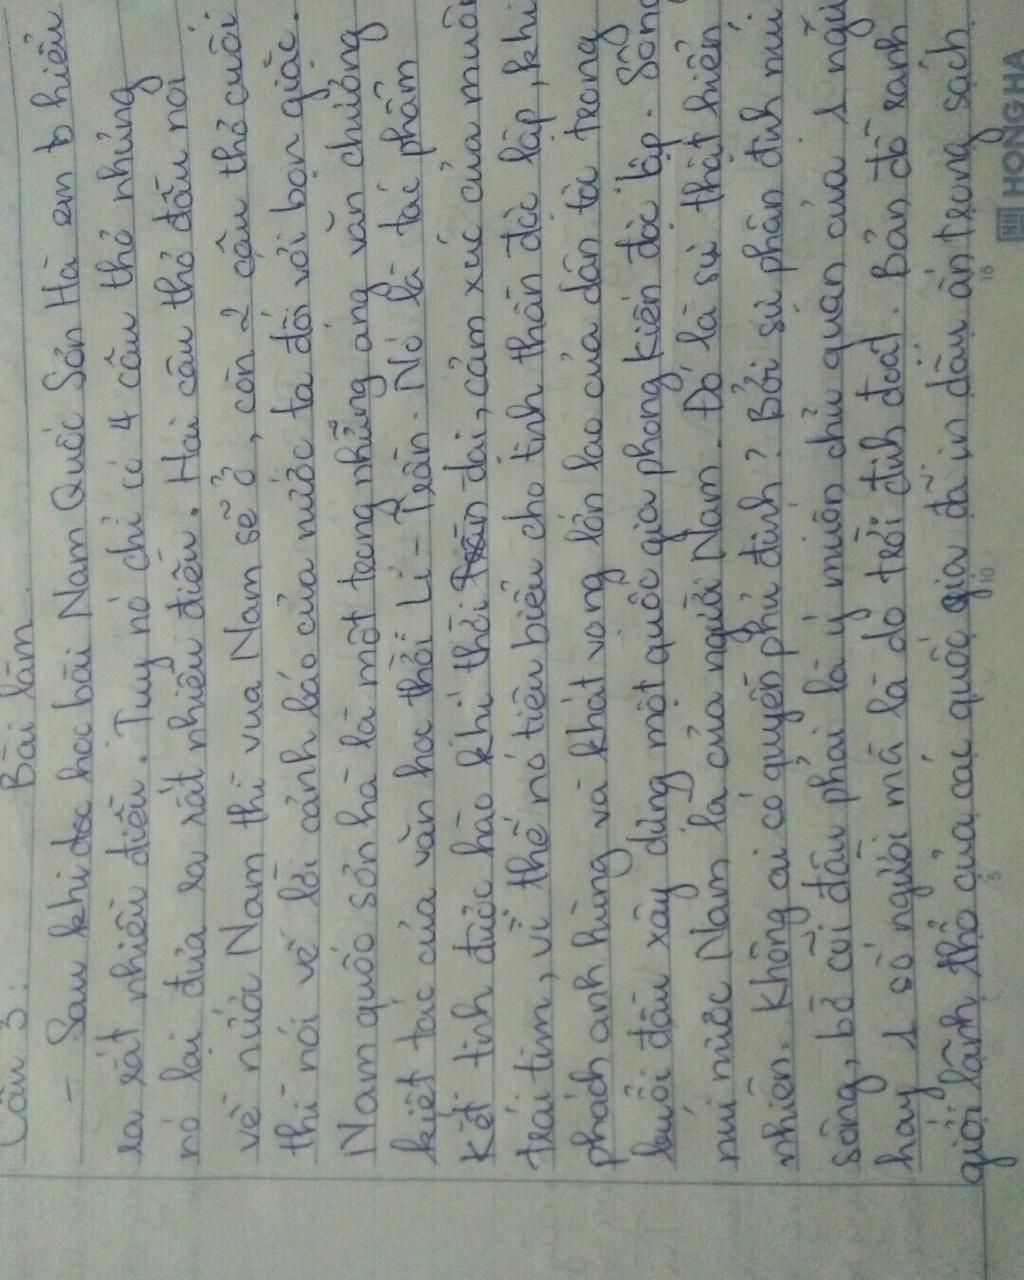 Câu 3: Bài làm
- Sau khi đọc học bài Nam Quốc Sơn Hà em to hiểu
ra rất nhiều điều. Tuy nó chỉ có 4 câu thơ nhưng
nó lại đưa ra rất nhiều điều. Hai câu thơ đầu nói
về nước Nam thì vua Nam sẽ ở, còn 2 câu thơ cuối
thì nói về lời cảnh báo của nước ta đối với bọn giặc.
Nam quốc sơn hà là một trong những áng văn chương
kiệt tác của văn học thời Lí - Trần. Nó là tác phẩm
kết tinh được hào khí thời đại, cảm xúc của muôn
trái tim, vì thế nó tiêu biểu cho tinh thần độc lập, khí
phách anh hùng và khát vọng lớn lao của dân tộc trong
buổi đầu xây dựng một quốc gia phong kiến độc lập. Sông
núi nước Nam là của người Nam. Đó là sự thật hiển
nhiên. Không ai có quyền phủ định? Bởi sự phân định núi
sông, bờ cõi đâu phải là ý muốn chủ quan của 1 người
hay 1 số người mà là do trời định đoạt. Bản đồ ranh
giới lãnh thổ của các quốc gia đã in dấu ấn trong sách
HONG HA
5
10
15